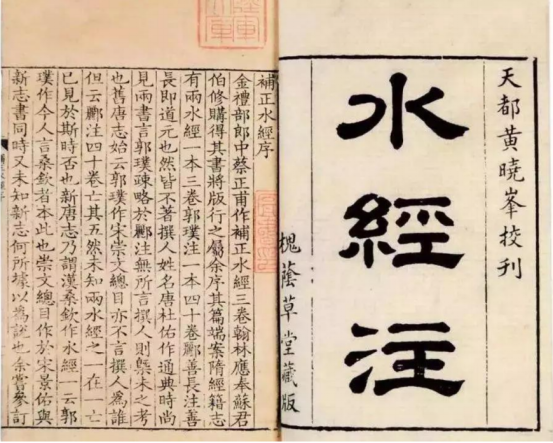 天都黄曉峯挍刊
水經注
槐蔭草堂藏版
補正水經序
金禮部郎中蔡正甫作補正水經三卷翰林應奉蘇君
伯修購得其書將版行之屬余序其篇端案隋經籍志
有兩水經一本三卷郭璞注一本四十卷酈善長注善
長即道元也然皆不著撰人姓名唐杜佑作通典時尚
見兩書言郭璞疎略於酈注無所言撰人則槩未之考
也舊唐志始云郭璞作宋崇文總目亦不言撰人為誰
但云酈注四十卷亡其五然未知兩水經之一在一亡
已見於斯時否也新唐志乃謂漢桑欽作水經一云郭
璞作今人言桑欽者本此也崇文總目作於宋景佑與
新志書同時又未知新志何所據以為說也余嘗參訂